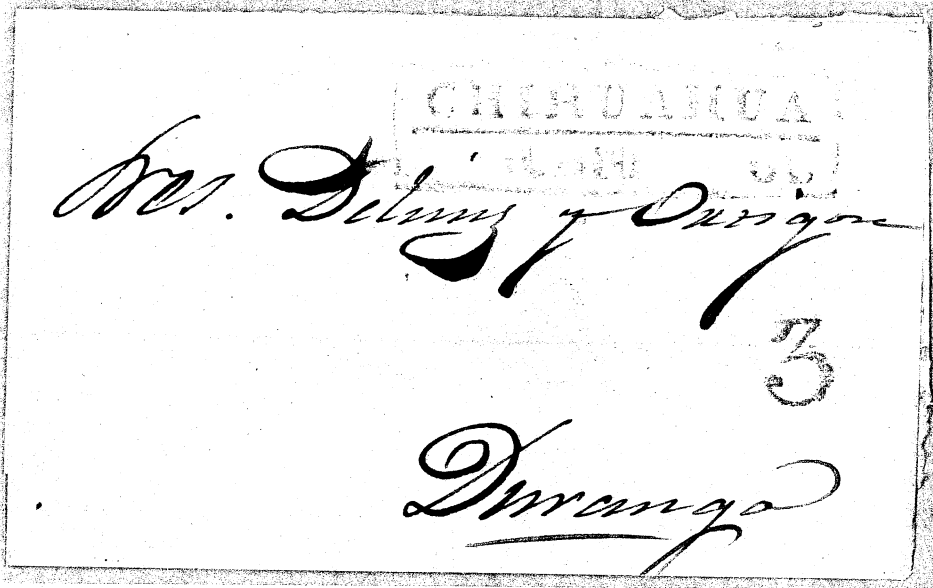 CHIHUAHUA
Sres. Delmas y Durigon
3
Durango